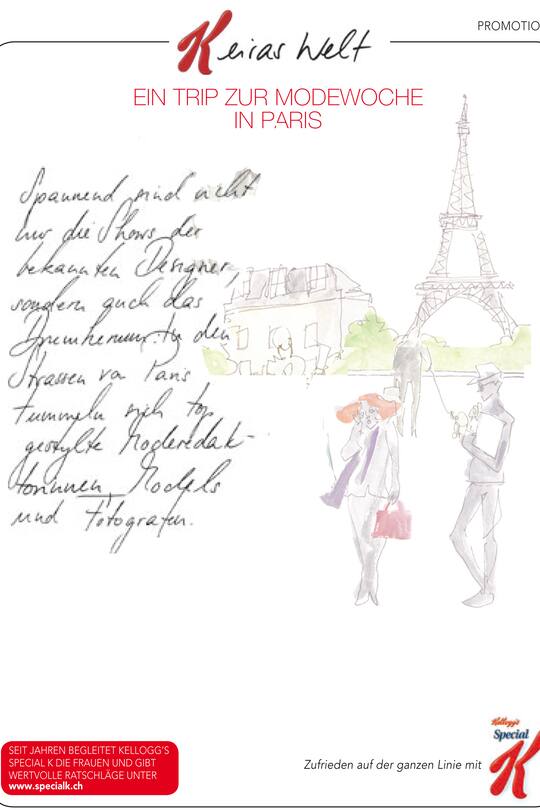 PROMOTIO
Keiras Welt
EIN TRIP ZUR MODEWOCHE
IN PARIS
Spannend sind nicht
nur die Shows der
bekannten Designer,
sondern auch das
Drumherum. In den
Strassen von Paris
tummeln sich top
gestylte Moderedak-
torinnen, Models
und Fotografen.
SEIT JAHREN BEGLEITET KELLOGG'S
SPECIAL K DIE FRAUEN UND GIBT
WERTVOLLE RATSCHLÄGE UNTER
www.specialk.ch
Zufrieden auf der ganzen Linie mit
Kellogg's
Special
K